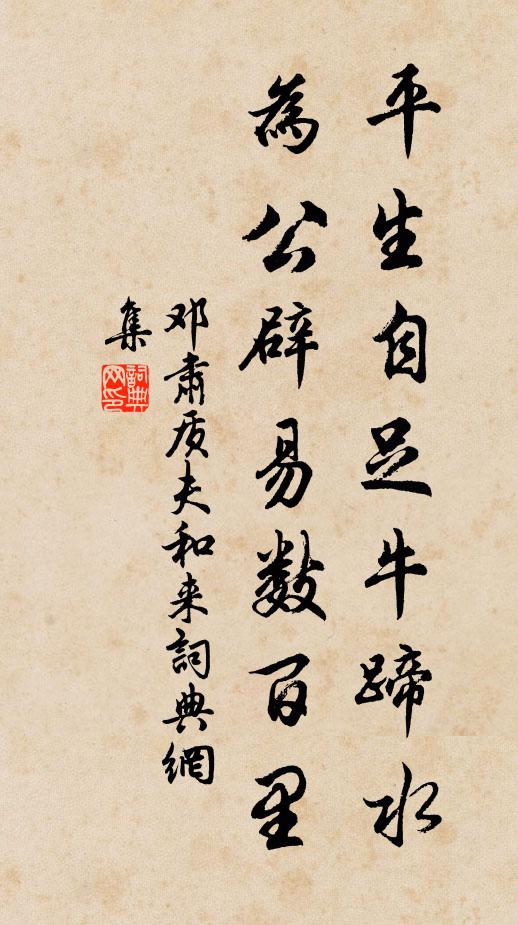 平生自足牛蹄水
為公辟易数百里
邓肃质夫和来詞典網
集
詞典网印